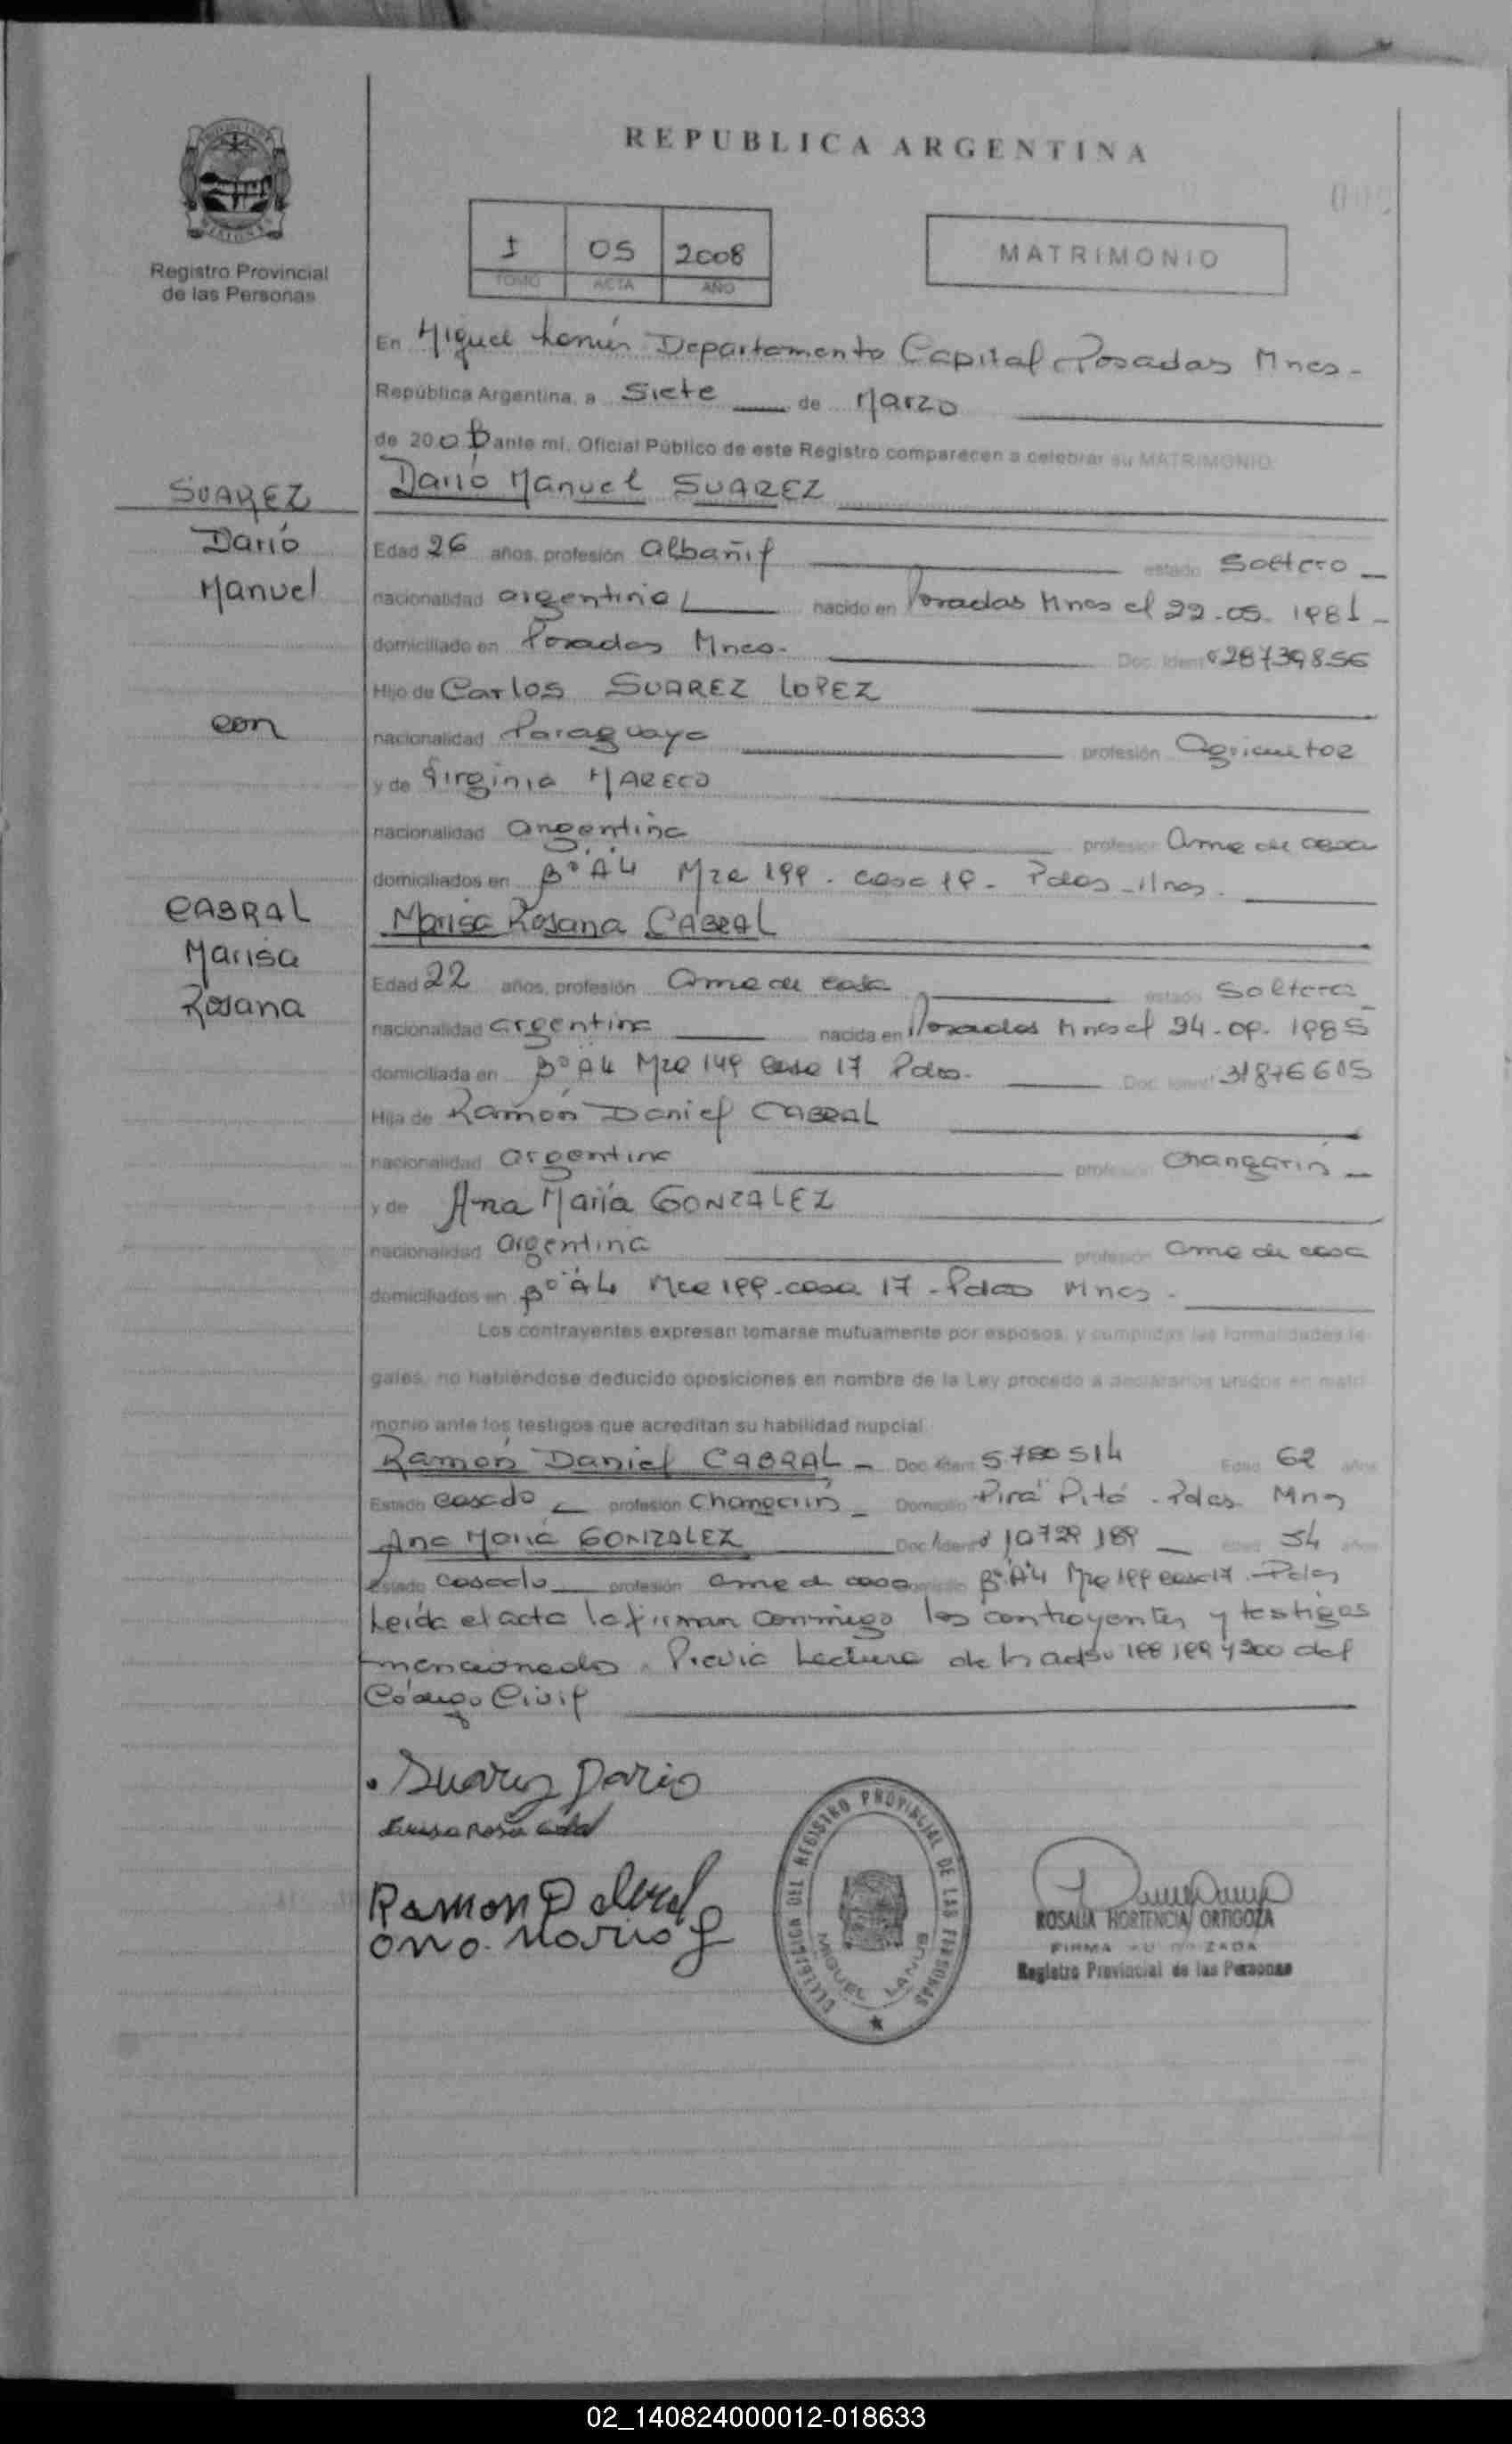 REPUBLICA ARGENTINA
Registro Provincial
de las Personas
I 05 2008
TOMO ACTA AÑO
MATRIMONIO
En Miguel Lanús Departamento Capital Posadas Mnes-
República Argentina, a Siete de Marzo
de 2008 ante mí, Oficial Público de este Registro comparecen a celebrar su MATRIMONIO:
SUAREZ
Darío
Manuel
Darío Manuel SUAREZ
Edad 26 años, profesión albañil estado Soltero
nacionalidad argentino nacido en Posadas Mnes el 22-05-1981-
domiciliado en Posadas Mnes- Doc. Ident. 28739856
Hijo de Carlos SUAREZ LOPEZ
con
nacionalidad Paraguaya profesión Agricultor
y de Virginia MARECO
nacionalidad argentina profesión ama de casa
domiciliados en Bº A4 Mza 199- casa 19- Pdas-Mnes.
CABRAL
Marisa
Rosana
Marisa Rosana CABRAL
Edad 22 años, profesión ama de casa estado Soltera
nacionalidad argentina nacida en Posadas Mnes el 24-09-1985
domiciliada en Bº A4 Mza 149 casa 17 Pdas- Doc. Ident. 31876605
Hija de Ramón Daniel CABRAL
nacionalidad argentina profesión Changarín
y de Ana María GONZALEZ
nacionalidad argentina profesión ama de casa
domiciliados en Bº A4 Mza 199-casa 17-Pdas Mnes-
Los contrayentes expresan tomarse mutuamente por esposos, y cumplidas las formalidades le-
gales, no habiéndose deducido oposiciones en nombre de la Ley procedo a declararlos unidos en matri-
monio ante los testigos que acreditan su habilidad nupcial
Ramón Daniel CABRAL- Doc. Ident. 5780514 Edad 62 años
Estado casado profesión Changarín Domicilio Pirá Pitá-Pdas Mnes
Ana María GONZALEZ Doc. Ident. 10729189 Edad 54 años
Estado casada profesión ama de casa Domicilio Bº A4 Mza 199 casa 17-Pdas
Leída el acta la firman conmigo los contrayentes y testigos
mencionados. Previa Lectura de los arts. 198 199 y 200 del
Código Civil
Suarez Dario
Ramon D Cabral
Ana Maria G
DELEGACION DEL REGISTRO PROVINCIAL DE LAS PERSONAS
MIGUEL LANUS
ROSALIA HORTENCIA ORTIGOZA
FIRMA AUTORIZADA
Registro Provincial de las Personas
02_140824000012-018633